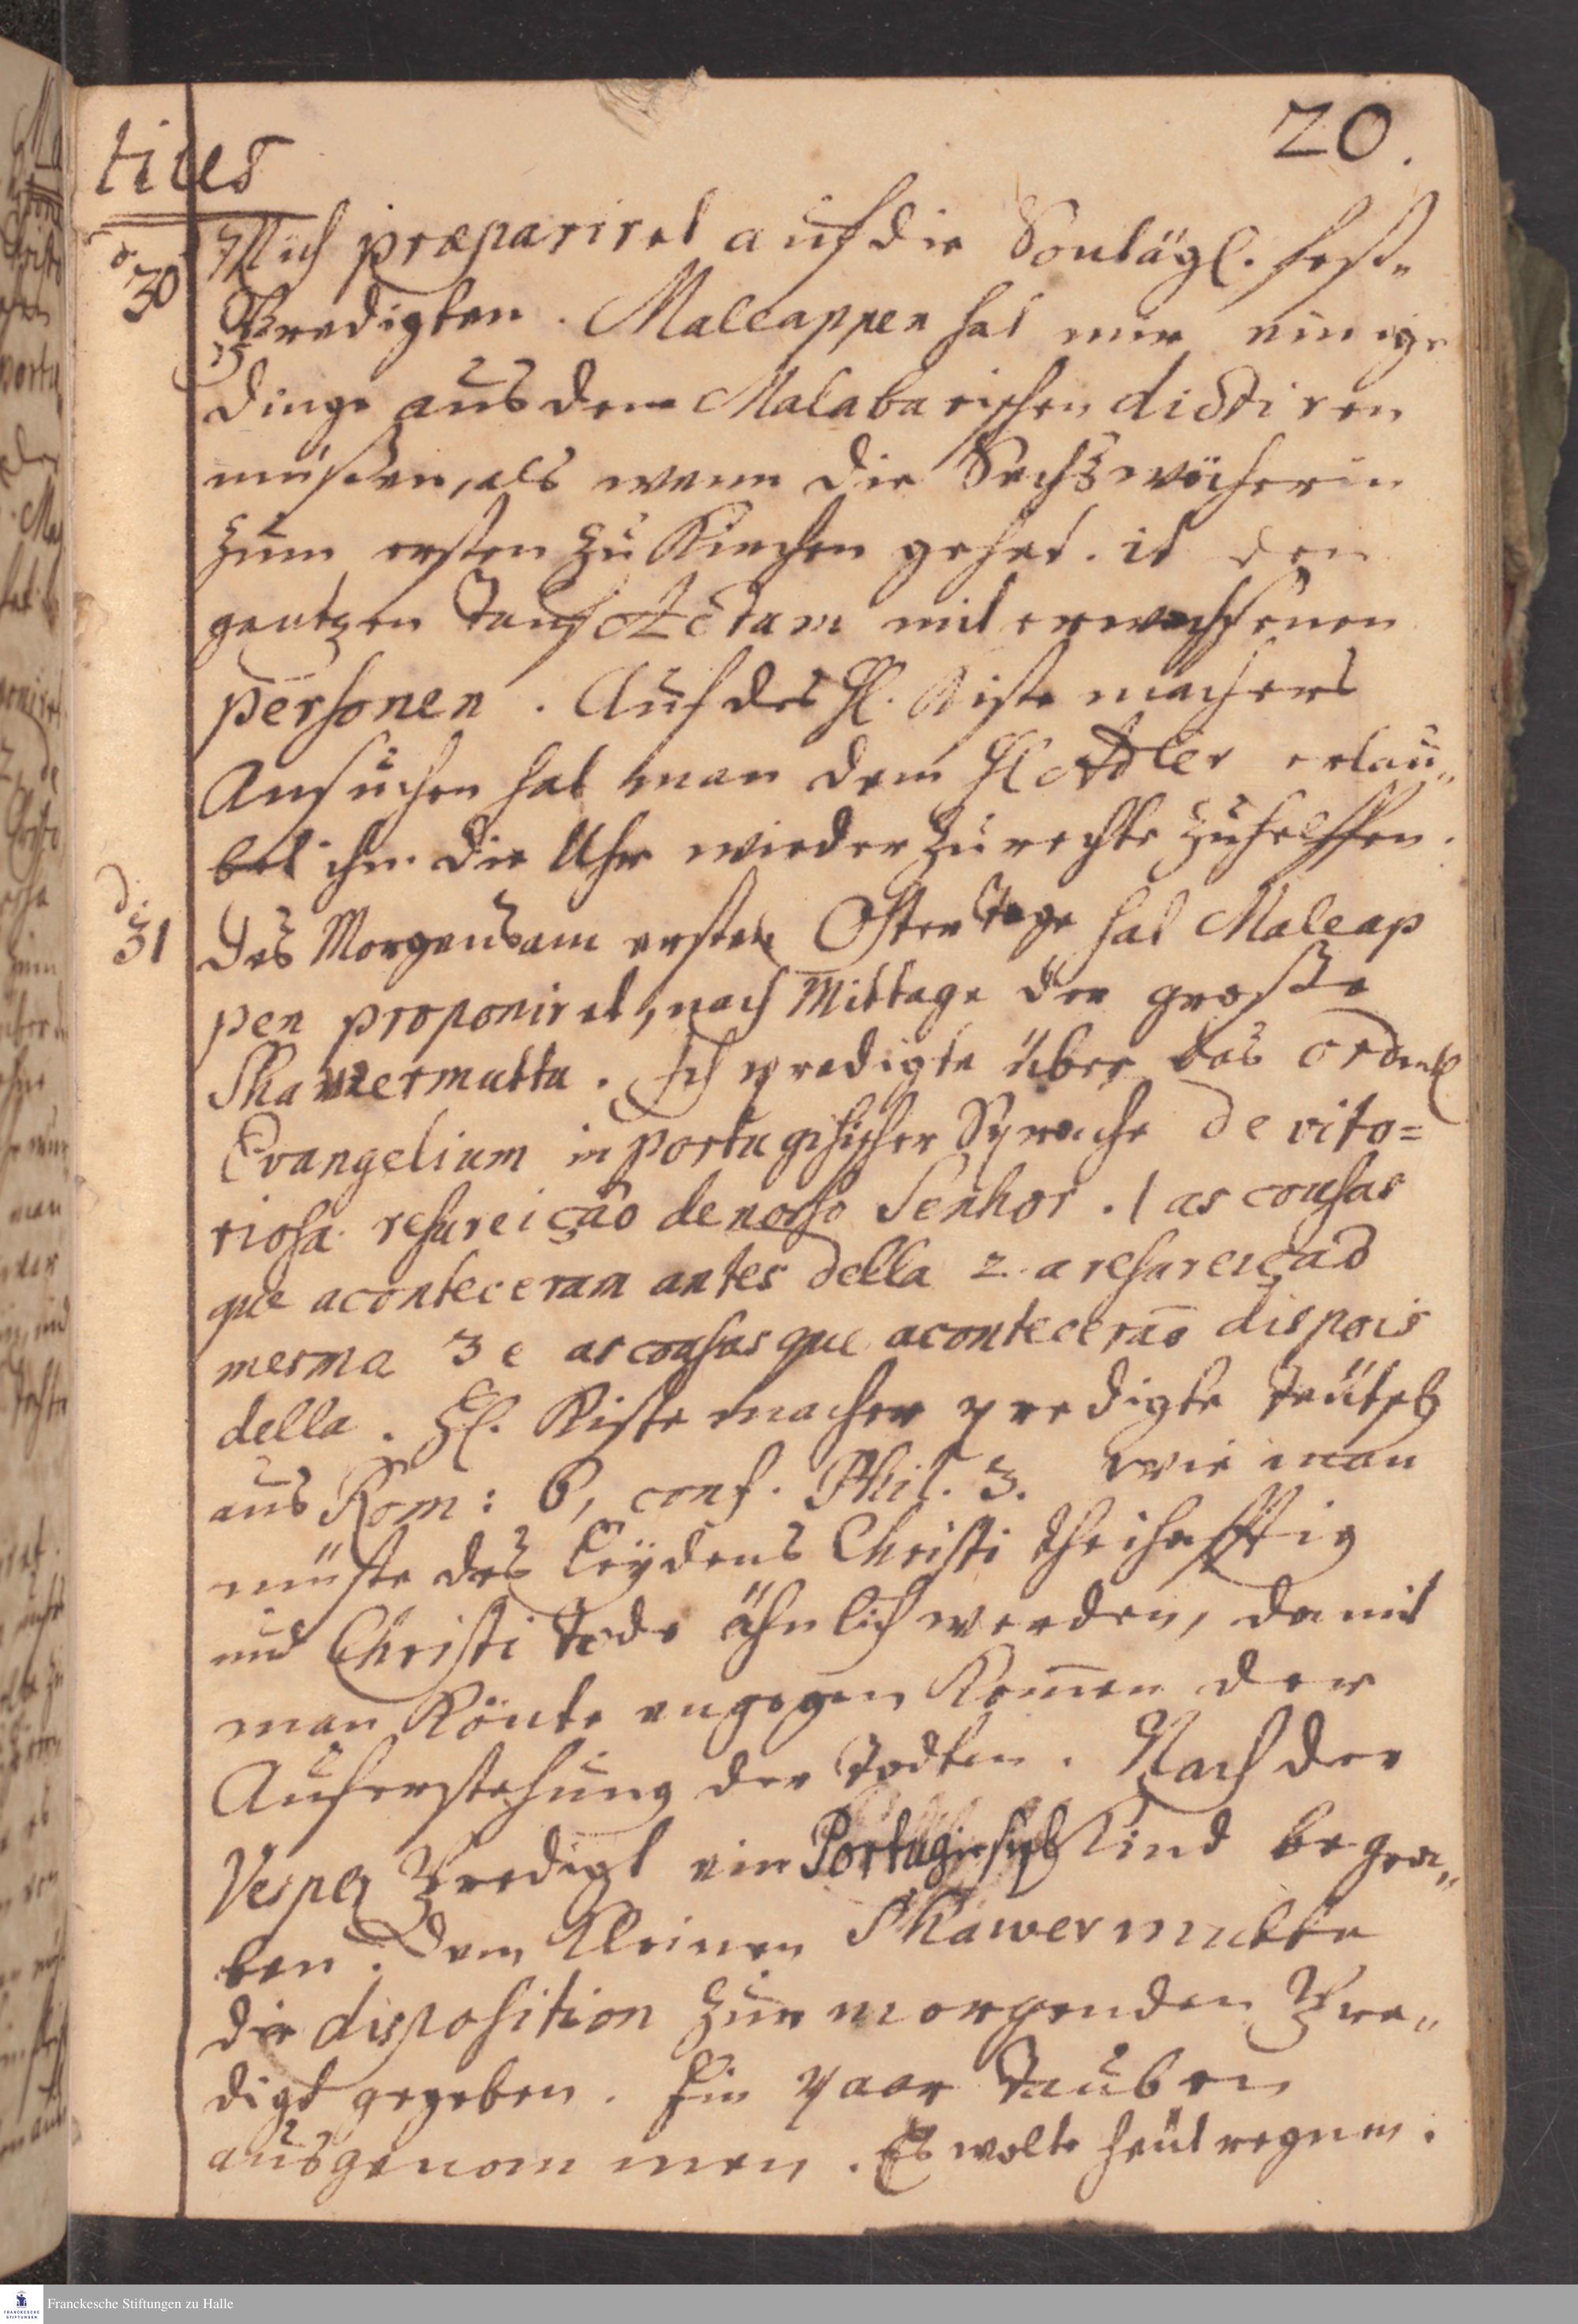 20.
tires
d. 30 Mich præpariret auf die Sontägl. fest„
Predigten. Maleappen hat mir einige
dinge aus dem Malabarischen dictiren
müßen, als wenn die Sechswöcherin
zum ersten zu Kirchen gehet. it den
gantzen Tauf Actum mit erwachsenen
persohnen. Auf des Hl. Kistemachers
Ansuchen hat man dem Hl Adler erlau„
bet ihm die Uhr wieder zu rechte zuhelffen.
d. 31 Des Morgens am ersten Ostertage hat Maleap
pen proponiret, nach Mittage der große
Shawermuttu. Ich predigte über das ordentl
Evangelium in portugisischer Sprache de vito=
riosa resureição de nosso Senhor. 1 as cousas
que aconteceram antes della 2. a resureição
mesma 3 e as cousas que aconteceraõ dispois
della. Hl. Kistemacher predigte teütsch
aus Rom: 6, conf. Phil. 3. wie man
müste des Leÿdens Christi theihafftig
und Christi Tode ähnlich werden, damit
man Könte engegen Kom̄en der
Auferstehung der Todten. Nach der
Vesper Predigt ein Portugisisch Kind begra„
ben. Dem Kleinen Shawermuttu
die disposition zur morgenden Pre„
digt gegeben. Ein paar Tauben
ausgenommen. Es wolte heut regnen.
Franckesche Stiftungen zu Halle